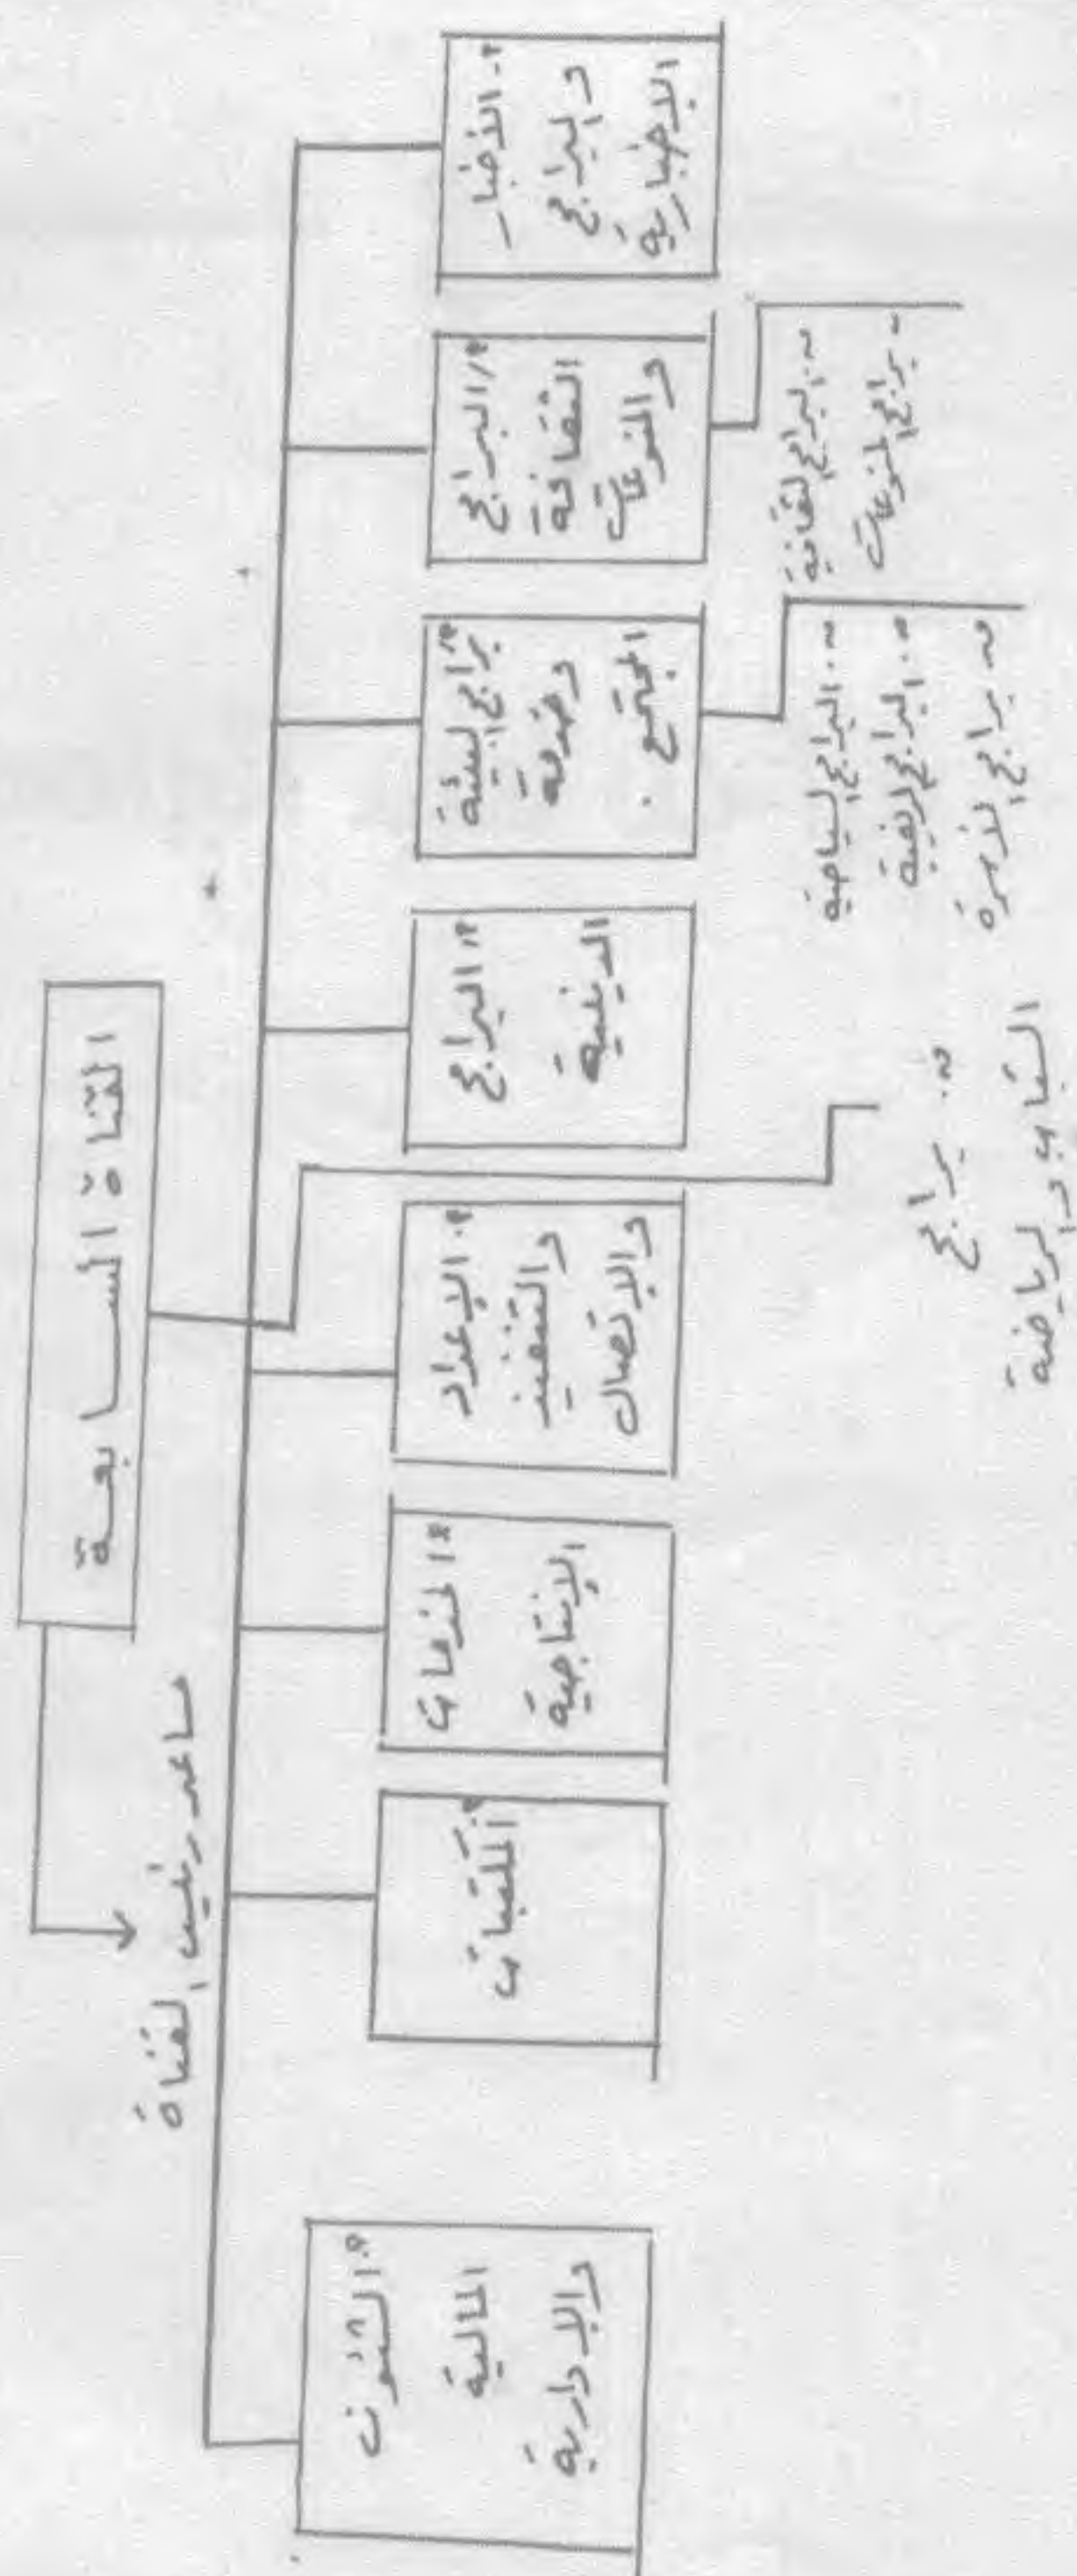 القناة السابعة
مساعد رئيس القناة
م. الأخبار
والبرامج
الإخبارية
م. البرامج
الثقافة
والمنوعات
ق. البرامج الثقافية
- برامج المنوعات
م. برامج البيئة
وخدمة
المجتمع.
ق. البرامج السياحية
ق. البرامج الريفية
ق. برامج الأسرة
م. البرامج
الدينية
ق. برامج
الشباب والرياضة
م. الإعداد
والتنفيذ
والاتصال
م. الخدمات
الإنتاجية
م. المكتبات
م. الشئون
المالية
والإدارية